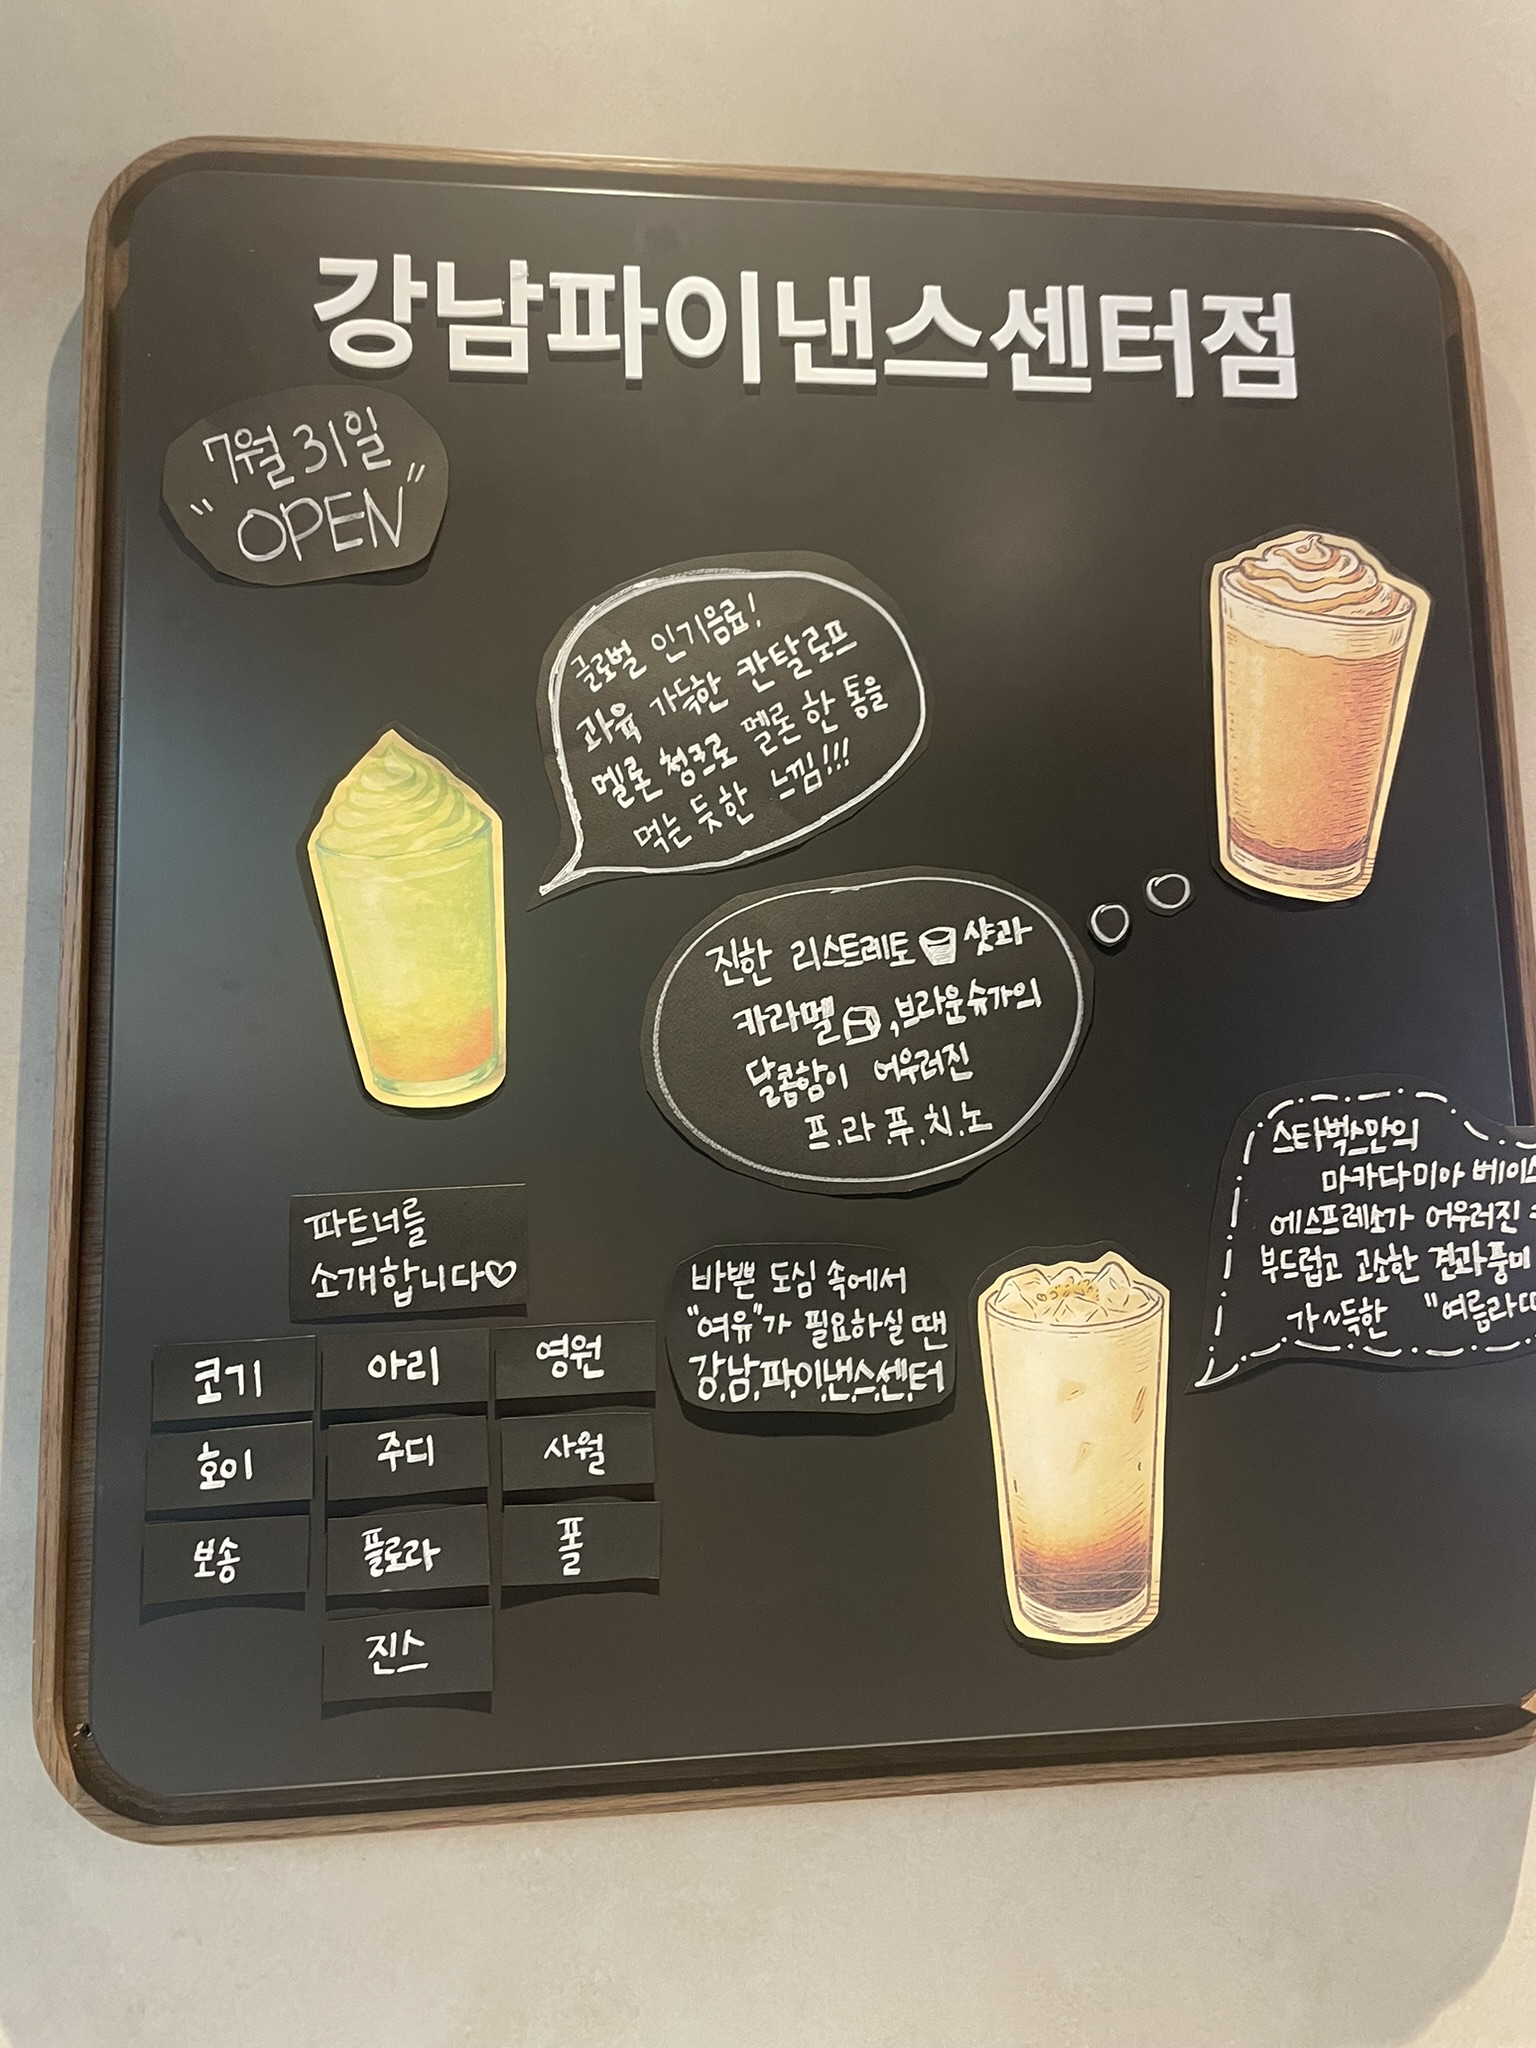 강남파이낸스센터점
7월 31일
"OPEN"
글로벌 인기음료!
과육 가득한 칸탈로프
멜론 청크로 멜론 한 통을
먹는 듯한 느낌!!!
진한 리스트레토 샷과
카라멜 , 브라운슈가의
달콤함이 어우러진
프.라.푸.치.노
스타벅스만의
마카다미아 베이스
에스프레소가 어우러진
부드럽고 고소한 견과풍미
가~득한 "여름라떼
바쁜 도심 속에서
"여유"가 필요하실 땐
강.남.파.이.낸.스.센.터
파트너를
소개합니다♡
코기 아리 영원
호이 주디 사월
보송 플로라 폴
진스